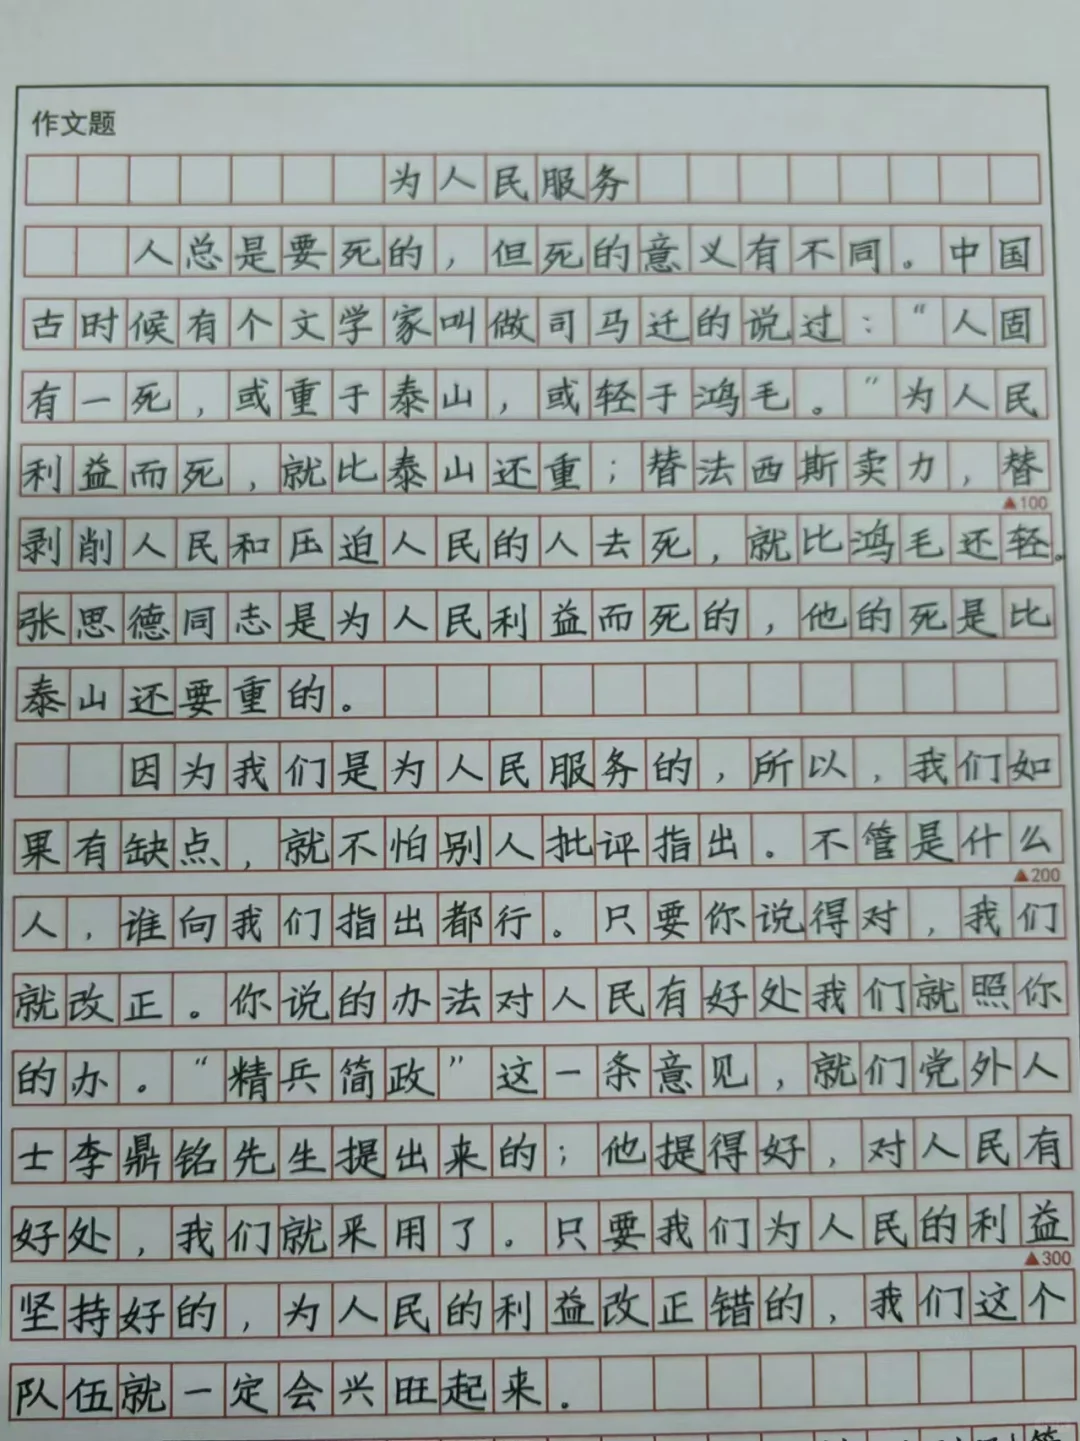 作文题
为人民服务
人总是要死的，但死的意义有不同。中国
古时候有个文学家叫做司马迁的说过：“人固
有一死，或重于泰山，或轻于鸿毛。”为人民
利益而死，就比泰山还重；替法西斯卖力，替
▲100
剥削人民和压迫人民的人去死，就比鸿毛还轻。
张思德同志是为人民利益而死的，他的死是比
泰山还要重的。
因为我们是为人民服务的，所以，我们如
果有缺点，就不怕别人批评指出。不管是什么
▲200
人，谁向我们指出都行。只要你说得对，我们
就改正。你说的办法对人民有好处我们就照你
的办。“精兵简政”这一条意见，就们党外人
士李鼎铭先生提出来的；他提得好，对人民有
好处，我们就采用了。只要我们为人民的利益
▲300
坚持好的，为人民的利益改正错的，我们这个
队伍就一定会兴旺起来。